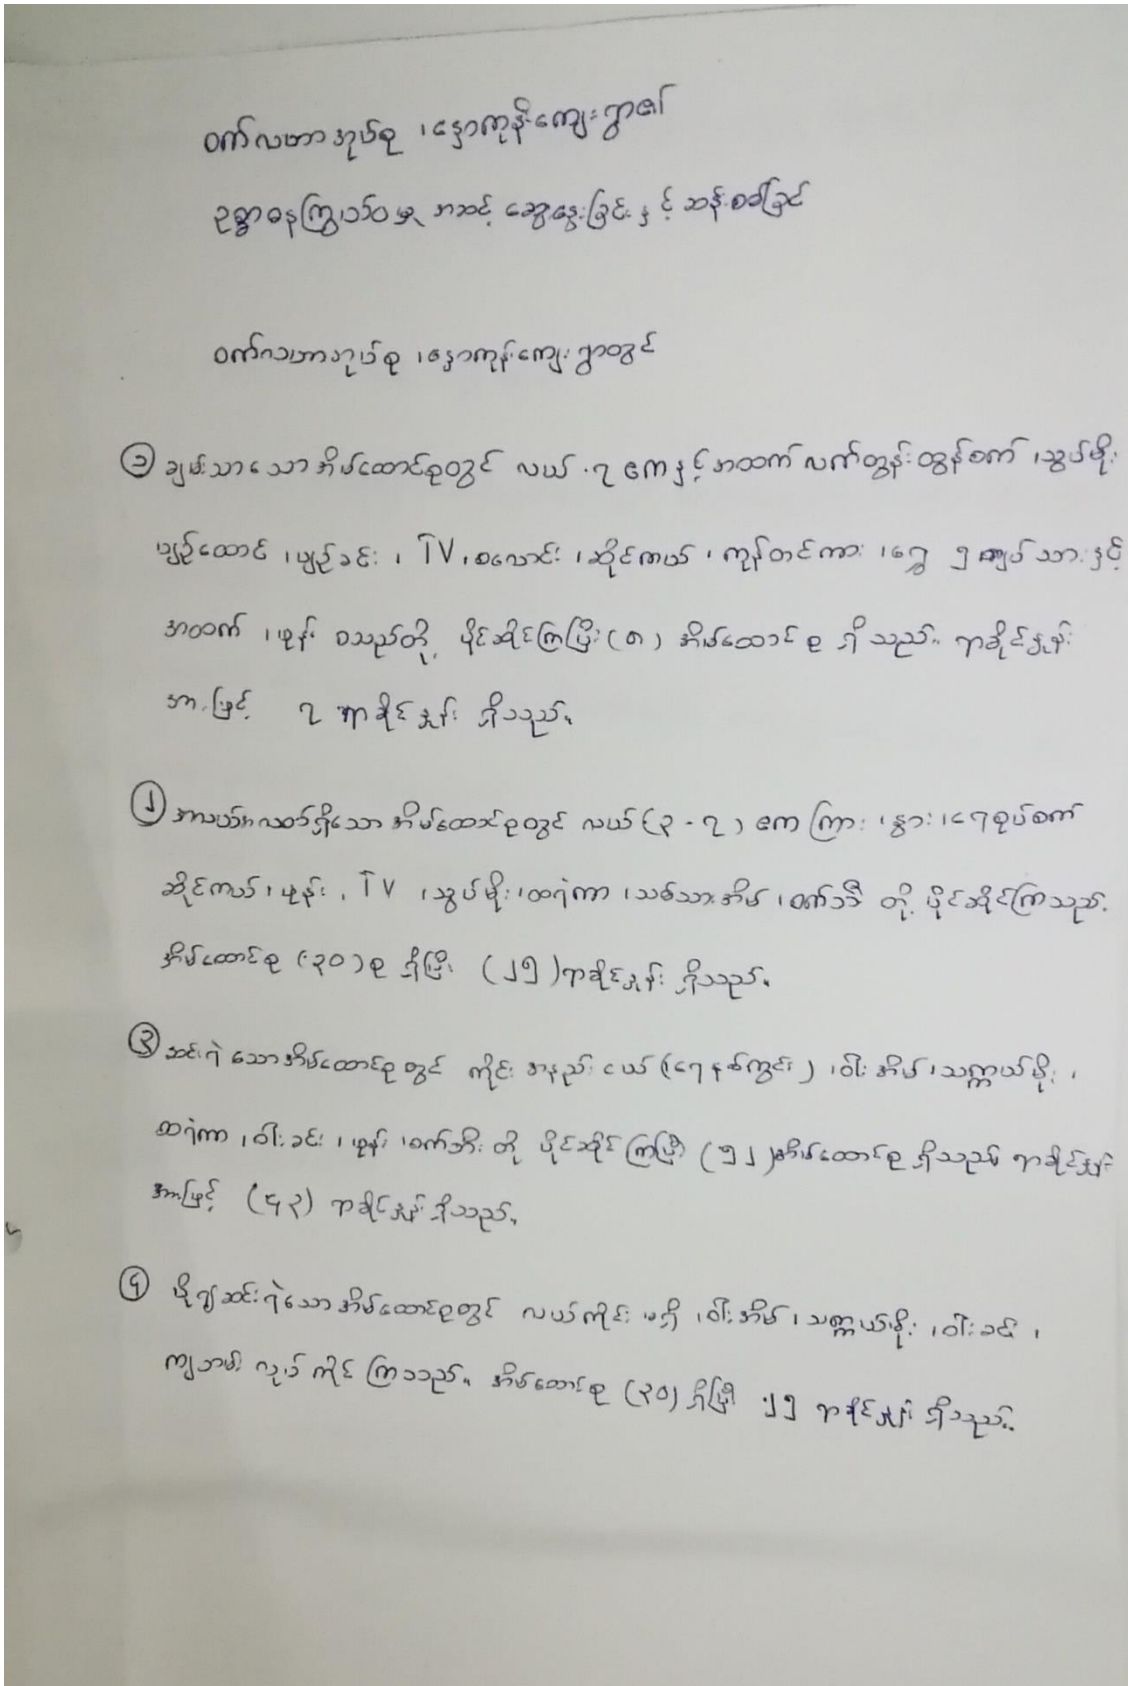 ဝက်လဟာအုပ်စု ၊ နှောကုန်းကျေးရွာ၏
ဥစ္စာဓနကြွယ်ဝမှု အဆင့် ဆွေးနွေးခြင်း နှင့် ဆန်းစစ်ခြင်
ဝက်လဟာအုပ်စု ၊ နှောကုန်းကျေးရွာတွင်
၁ ချမ်းသာသော အိမ်ထောင်စုတွင် လယ် ၇ ဧကနှင့်အထက် လက်တွန်းထွန်စက် ၊ သွပ်မိုး
ပျဉ်ထောင် ၊ ပျဉ်ခင်း ၊ TV ၊ စလောင်း ၊ ဆိုင်ကယ် ၊ ကုန်တင်ကား ၊ ရွှေ ၅ ကျပ်သားနှင့်
အထက် ၊ ဖုန်း စသည်တို့ ပိုင်ဆိုင်ကြပြီး (၈) အိမ်ထောင်စု ရှိသည်။ ရာခိုင်နှုန်း
အားဖြင့် ၇ ရာခိုင်နှုန်း ရှိသည်။
၂ အလယ်အလတ်ရှိသော အိမ်ထောင်စုတွင် လယ် (၃ - ၇) ဧက ကြား ၊ နွား ၊ ရေစုပ်စက်
ဆိုင်ကယ် ၊ ဖုန်း ၊ TV ၊ သွပ်မိုး ၊ ထရံကာ ၊ သစ်သားအိမ် ၊ စက်ဘီး တို့ ပိုင်ဆိုင်ကြသည်.
အိမ်ထောင်စု (၃၀) စု ရှိပြီး (၂၅) ရာခိုင်နှုန်း ရှိသည်။
၃ ဆင်းရဲသောအိမ်ထောင်စုတွင် ကိုင်း အနည်းငယ် (ရေနစ်ကွင်း) ၊ ဝါးအိမ် ၊ သက္ကယ်မိုး ၊
ထရံကာ ၊ ဝါးခင်း ၊ ဖုန်း ၊ စက်ဘီး တို့ ပိုင်ဆိုင်ကြပြီး (၅၂) အိမ်ထောင်စု ရှိသည်။ ရာခိုင်နှုန်း
အားဖြင့် (၄၃) ရာခိုင်နှုန်း ရှိသည်။
၄ ပို၍ဆင်းရဲသောအိမ်ထောင်စုတွင် လယ်ကိုင်း မရှိ ၊ ဝါးအိမ် ၊ သက္ကယ်မိုး ၊ ဝါးခင်း ၊
ကျဘမ်း လုပ်ကိုင်ကြသည်။ အိမ်ထောင်စု (၃၀) ရှိပြီး ၂၅ ရာခိုင်နှုန်း ရှိသည်။